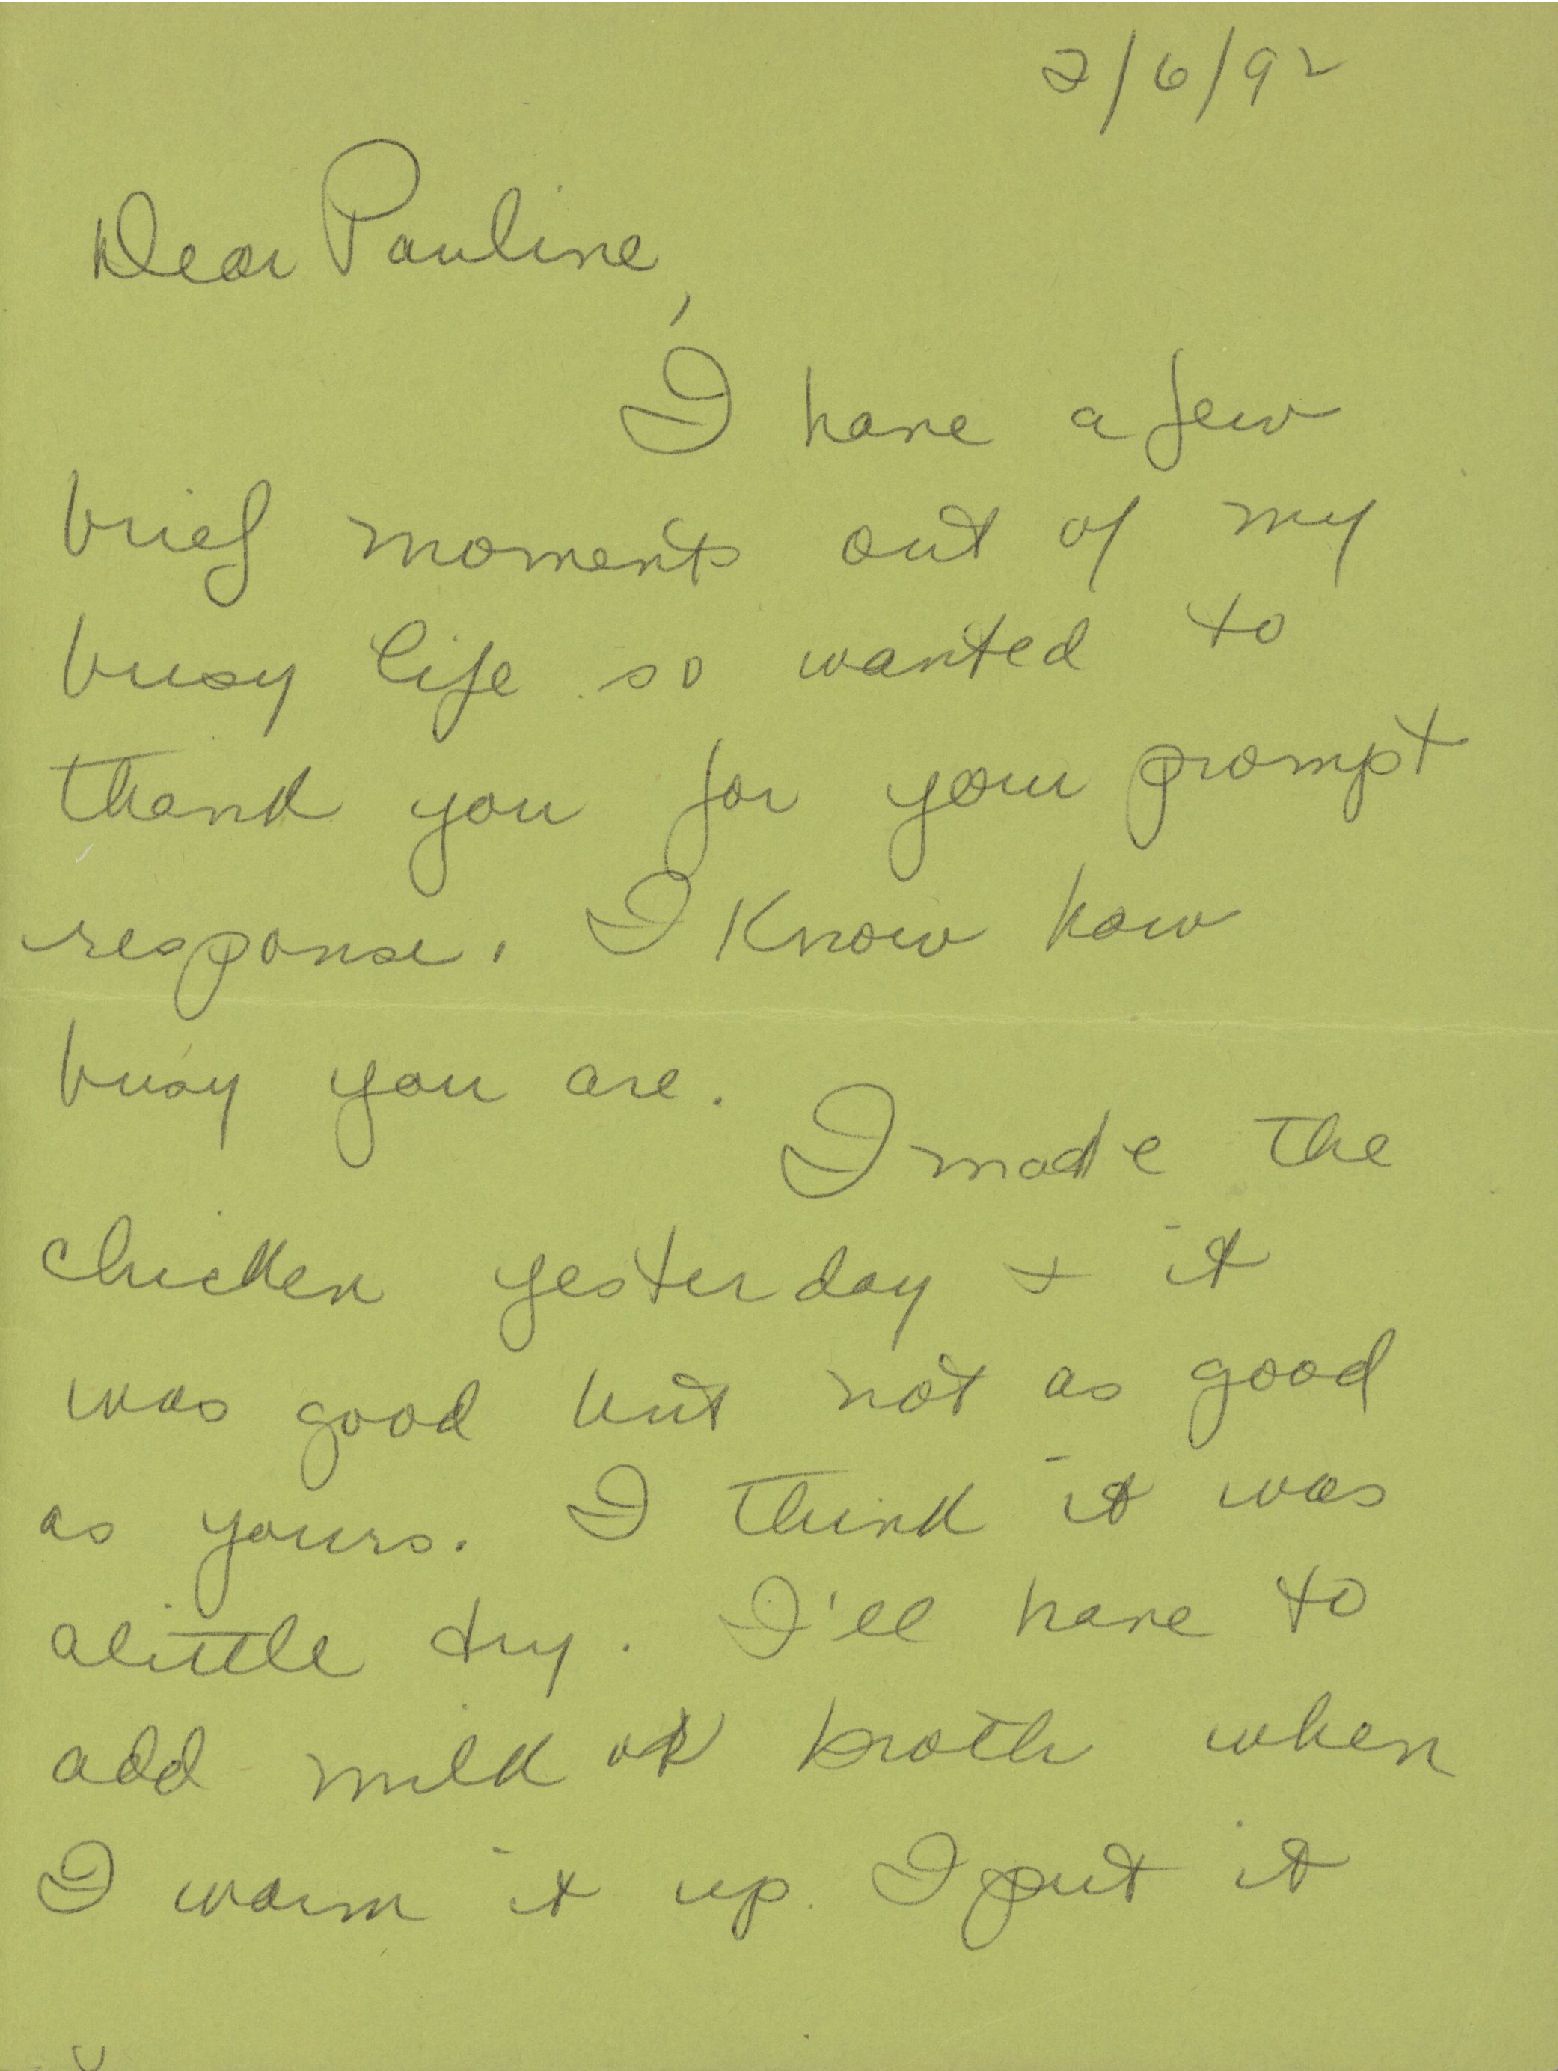 2/6/92
Dear Pauline,
I have a few
brief moments out of my
busy life so wanted to
thank you for your prompt
response. I know how
busy you are.
I made the
chicken yesterday + it
was good but not as good
as yours. I think it was
alittle dry. I'll have to
add milk or broth when
I warm it up. I put it